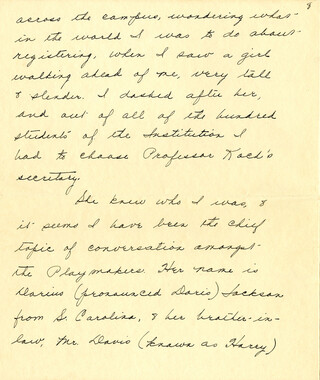 8
across the campus, wondering what
in the world I was to do about
registering, when I saw a girl
walking ahead of me, very tall
& slender. I dashed after her,
and out of all of the hundred
students of the Institution I
had to choose Professor Koch's
secretary.
She knew who I was, &
it seems I have been the chief
topic of conversation amongst
the Playmakers. Her name is
Darius (pronounced Daris) Jackson
from S. Carolina, & her brother-in-
law, Mr. Davis (known as Harry)